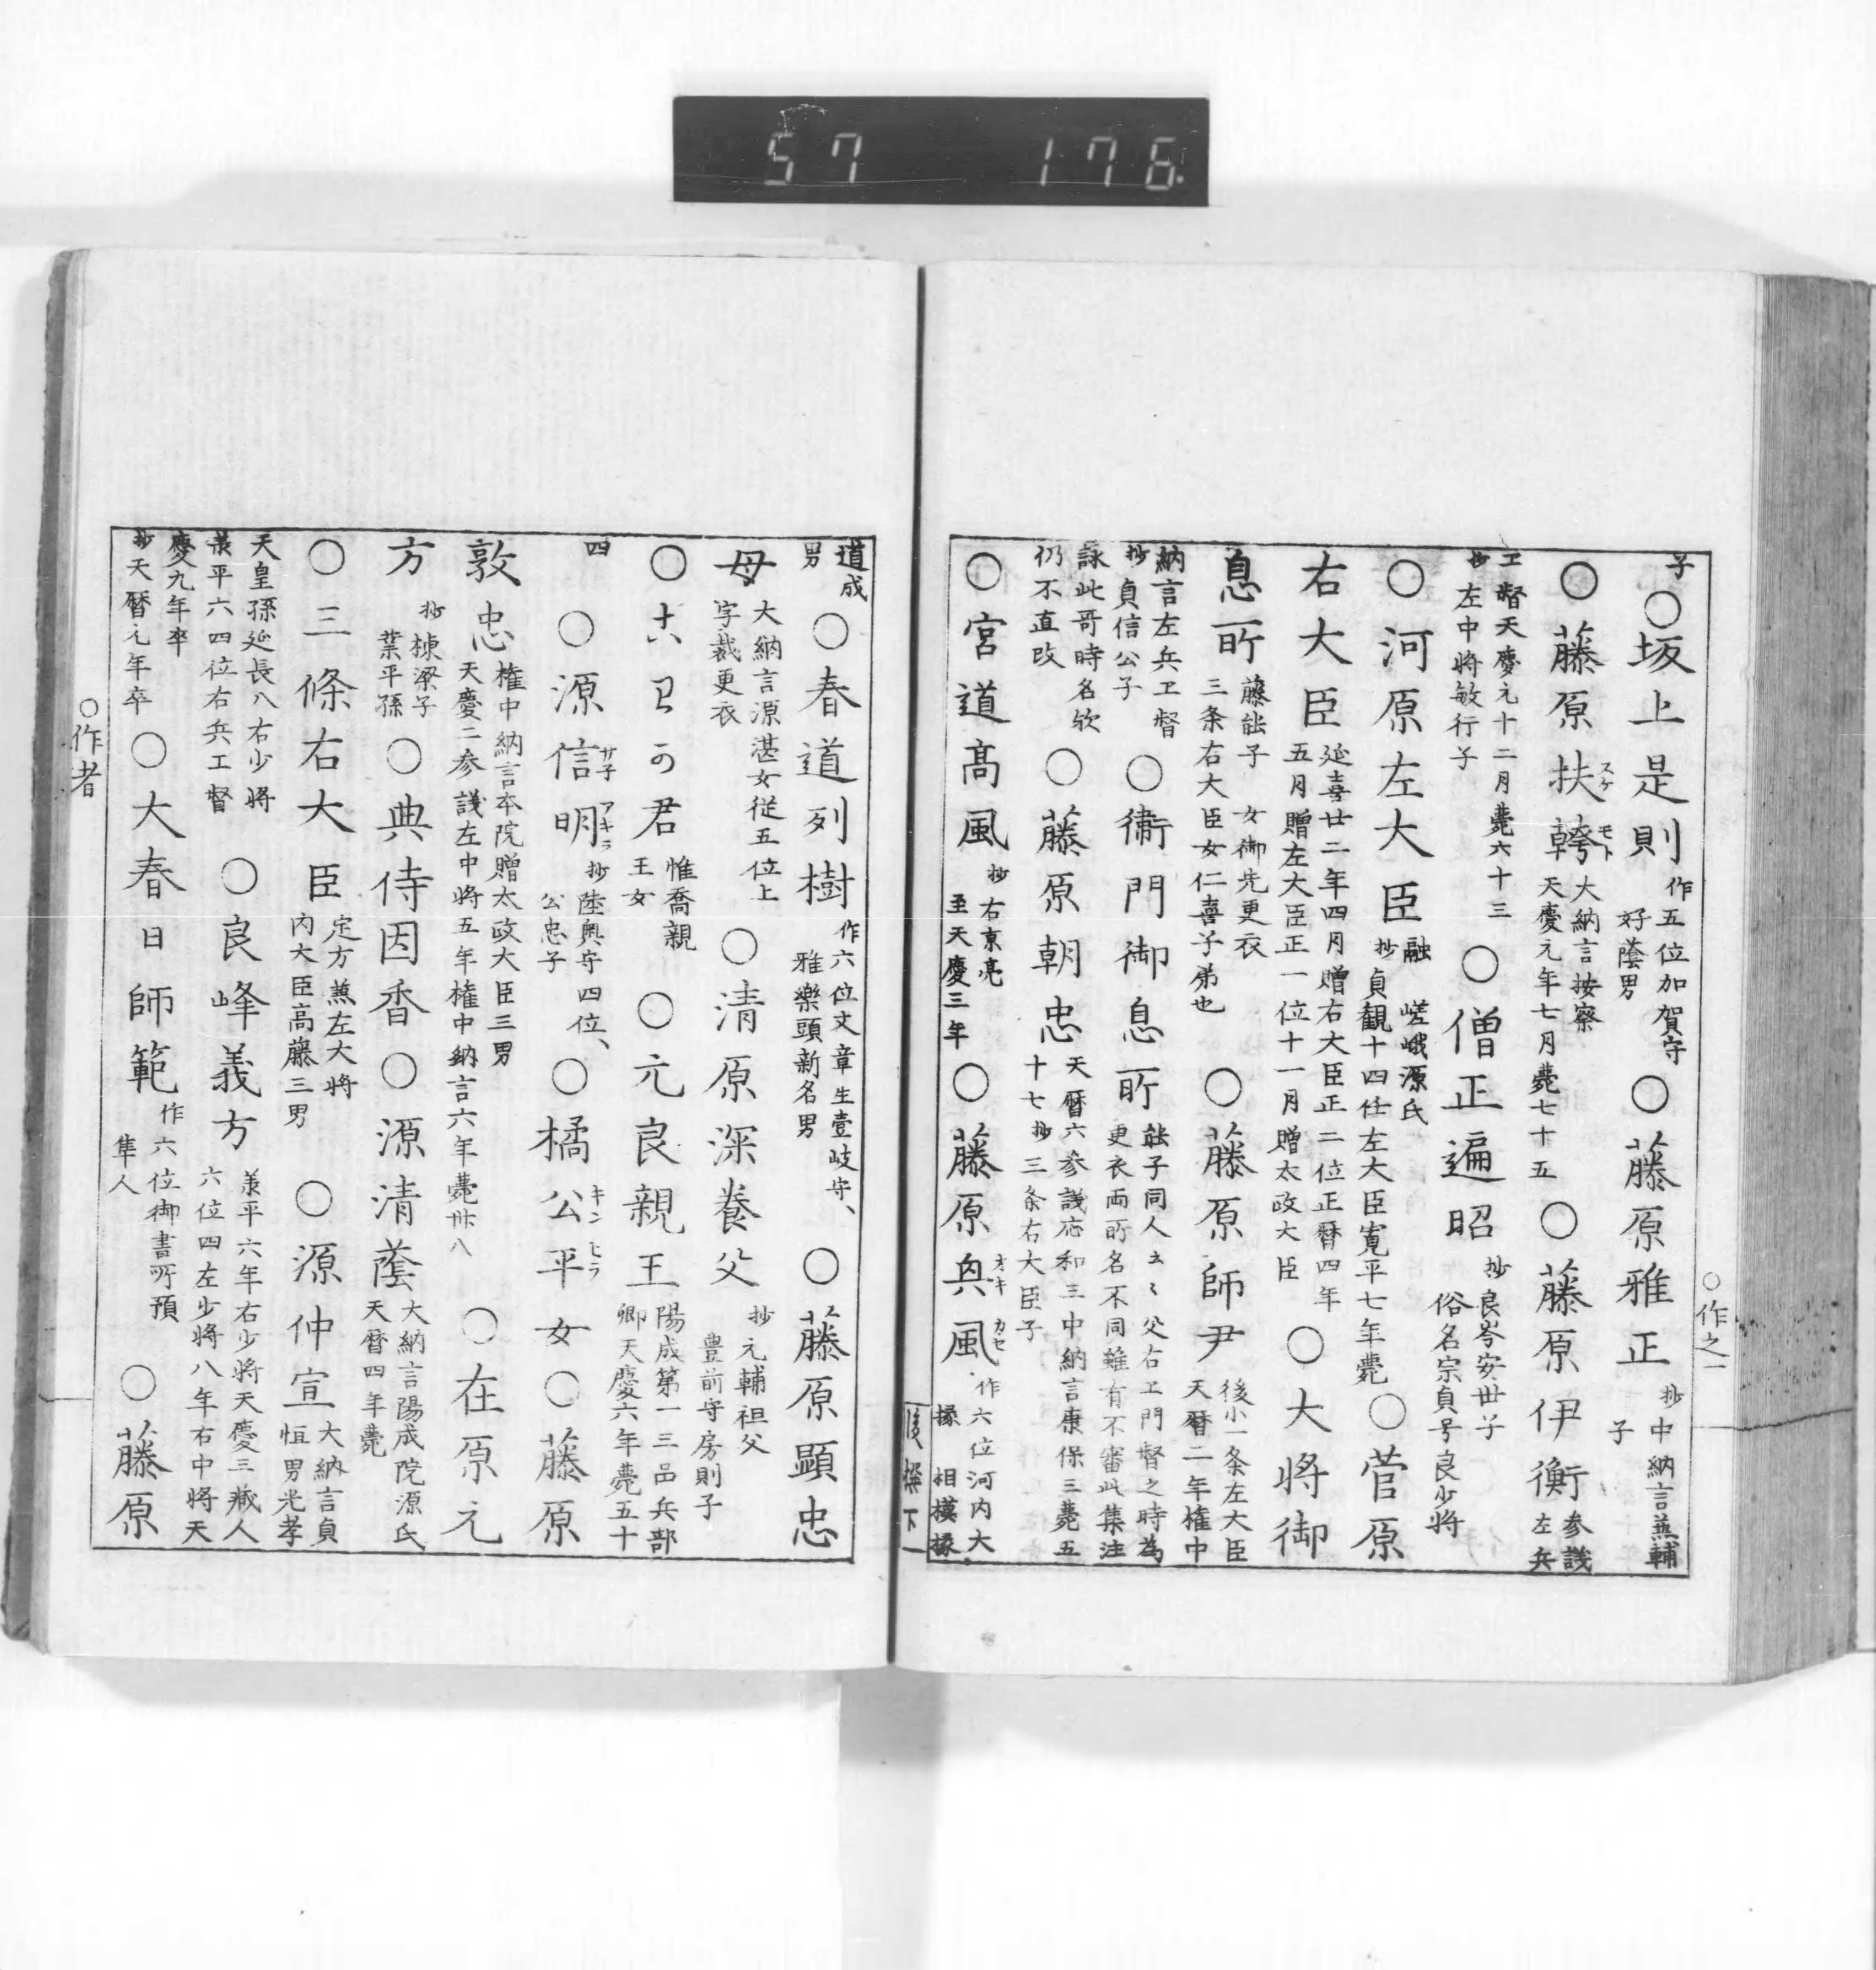 57 176
○作之一
子 ○坂上是則 作五位加賀守 好蔭男 ○藤原雅正 抄中納言兼輔子
○藤原扶幹 スケ モト 大納言按察 天慶元年七月薨七十五 ○藤原伊衡 参議左兵
エ督天慶元十二月薨六十三 抄左中将敏行子 ○僧正遍昭 抄良岑安世子 俗名宗貞号良少将
○河原左大臣 融 嵯峨源氏 抄貞観十四任左大臣寛平七年薨 ○菅原
右大臣 延喜廿二年四月贈右大臣正二位正暦四年 五月贈左大臣正一位十一月贈太政大臣 ○大将御
息所 藤能子 女御先更衣 三条右大臣女仁善子弟也 ○藤原師尹 後小一条左大臣 天暦二年権中
納言左兵エ督 抄貞信公子 ○衛門御息所 能子同人云々父右エ門督之時為 更衣両所名不同雖有不審此集注
詠此哥時名欤 仍不直改 ○藤原朝忠 天暦六参議応和三中納言康保三薨五 十七抄三条右大臣子
○宮道高風 抄右京亮 至天慶三年 ○藤原興風 オキ カセ 作六位河内大掾 相模掾
後撰下一
道成男 ○春道列樹 作六位文章生壹岐守、 雅樂頭新名男 ○藤原顕忠
母 大納言源湛女従五位上 字裁更衣 ○清原深養父 抄元輔祖父 豊前守房則子
○六のみ君 惟喬親王女 ○元良親王 陽成第一三品兵部 卿天慶六年薨五十
四 ○源信明 サ子 アキラ 抄陸奥守四位、 公忠子 ○橘公平女 キン ヒラ ○藤原
敦忠 権中納言本院贈太政大臣三男 天慶二参議左中将五年権中納言六年薨卅八 ○在原元
方 抄棟梁子 業平孫 ○典侍因香 ○源清蔭 大納言陽成院源氏 天暦四年薨
○三條右大臣 定方兼左大将 内大臣高藤三男 ○源仲宣 大納言貞恒男光孝
天皇孫延長八右少将 羕平六四位右兵エ督 ○良峰義方 羕平六年右少将天慶三蔵人 六位四左少将八年右中将天
慶九年卒 抄天暦元年卒 ○大春日師範 作六位御書所預 隼人 ○藤原
○作者